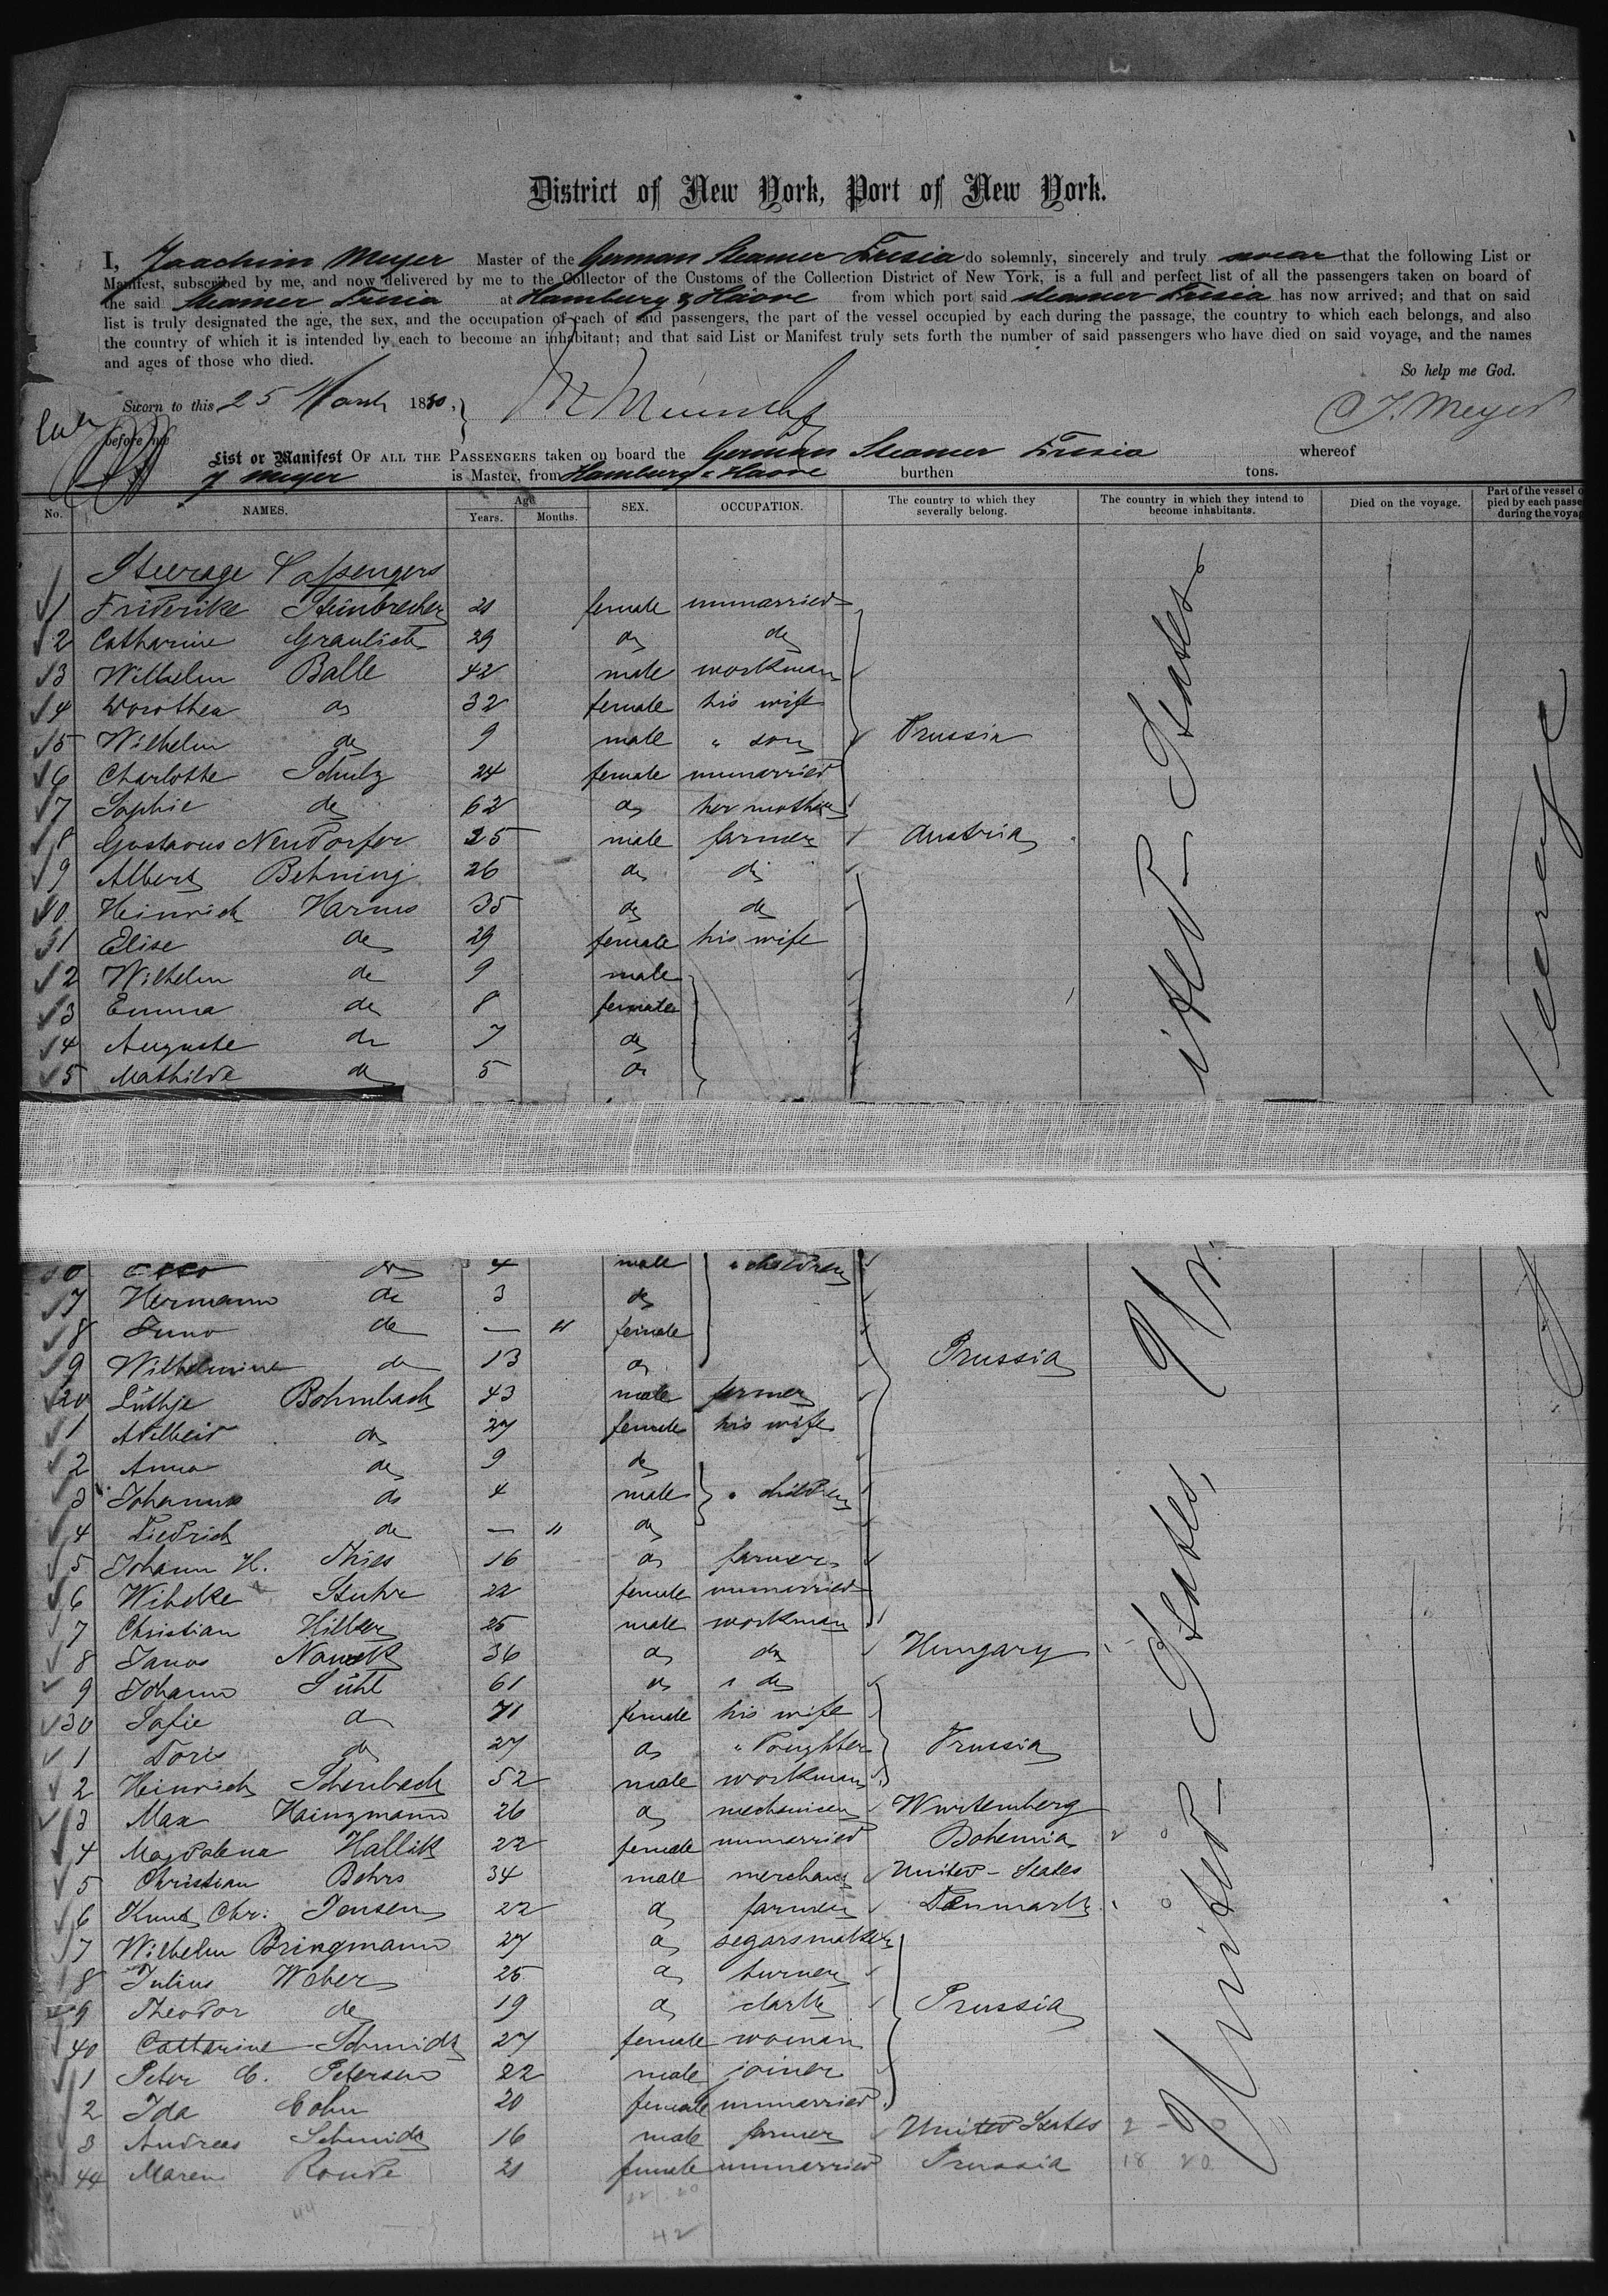 District of New York, Port of New York.
I, Joachim Meyer Master of the German Steamer Frisia do solemnly, sincerely and truly swear that the following List or
Manifest, subscribed by me, and now delivered by me to the Collector of the Customs of the Collection District of New York, is a full and perfect list of all the passengers taken on board of
the said Steamer Frisia at Hamburg & Havre from which port said steamer Frisia has now arrived; and that on said
list is truly designated the age, the sex, and the occupation of each of said passengers, the part of the vessel occupied by each during the passage, the country to which each belongs, and also
the country of which it is intended by each to become an inhabitant; and that said List or Manifest truly sets forth the number of said passengers who have died on said voyage, and the names
and ages of those who died.
So help me God.
Sworn to this 25 March 1880,
J. Meyer
before me
List or Manifest OF ALL THE PASSENGERS taken on board the German Steamer Frisia whereof
J Meyer is Master, from Hamburg & Havre burthen tons.
No. NAMES. Age Years. Months. SEX. OCCUPATION. The country to which they severally belong. The country in which they intend to become inhabitants. Died on the voyage. Part of the vessel pied by each passe during the voyag
Steerage Passengers
1 Friderike Steinbrecher 21 female unmarried
2 Catharine Graulich 29 do do
3 Wilhelm Balle 42 male workman
4 Dorothea do 32 female his wife
5 Wilhelm do 9 male " son Prussia
6 Charlotte Schulz 24 female unmarried
7 Sophie do 62 do her mother
8 Gustavus Neudorfer 25 male farmer Austria
9 Albert Behning 26 do do
10 Heinrich Harms 35 do do
11 Elise do 29 female his wife
2 Wilhelm do 9 male
3 Emma do 8 female
4 Auguste do 7 do
5 Mathilde do 5 do
Otto do 4 male " children
7 Hermann do 3 do
8 do — 11 female
9 Wilhelmine do 13 do Prussia
20 Lüthje Bohmbach 43 male farmer
1 Adelheid do 27 female his wife
2 Anna do 9 do
3 Johannes do 4 male " children
4 Diedrich do — 11 do
5 Johann H. Thies 16 do farmer
6 Wibeke Stuhr 22 female unmarried
7 Christian Hilker 25 male workman
8 Janos Nowak 36 do do Hungary
9 Johann Sühl 61 do do
30 Sofie do 71 female his wife
1 Doris do 27 do " Doughter Prussia
2 Heinrich Schubach 52 male workman
3 Max Hainzmann 26 do mechanican Wurtemberg
4 Magdalena Hallik 22 female unmarried Bohemia
5 Christian Behrs 34 male merchant United-States
6 Knud Chr: Jensen 22 do farmer Denmark
7 Wilhelm Bringmann 27 do segarsmaker
8 Julius Weber 25 do turner
9 Theodor do 19 do clark Prussia
40 Catharine Schmidt 27 female woman
1 Peter C. Petersen 22 male joiner
2 Ida Cohn 20 female unmarried
3 Andreas Schmidt 16 male farmer United States 2 - 0
44 Maren Roude 21 female unmarried Prussia 18 20
United States
United-States
Steerage
44
22 20
42